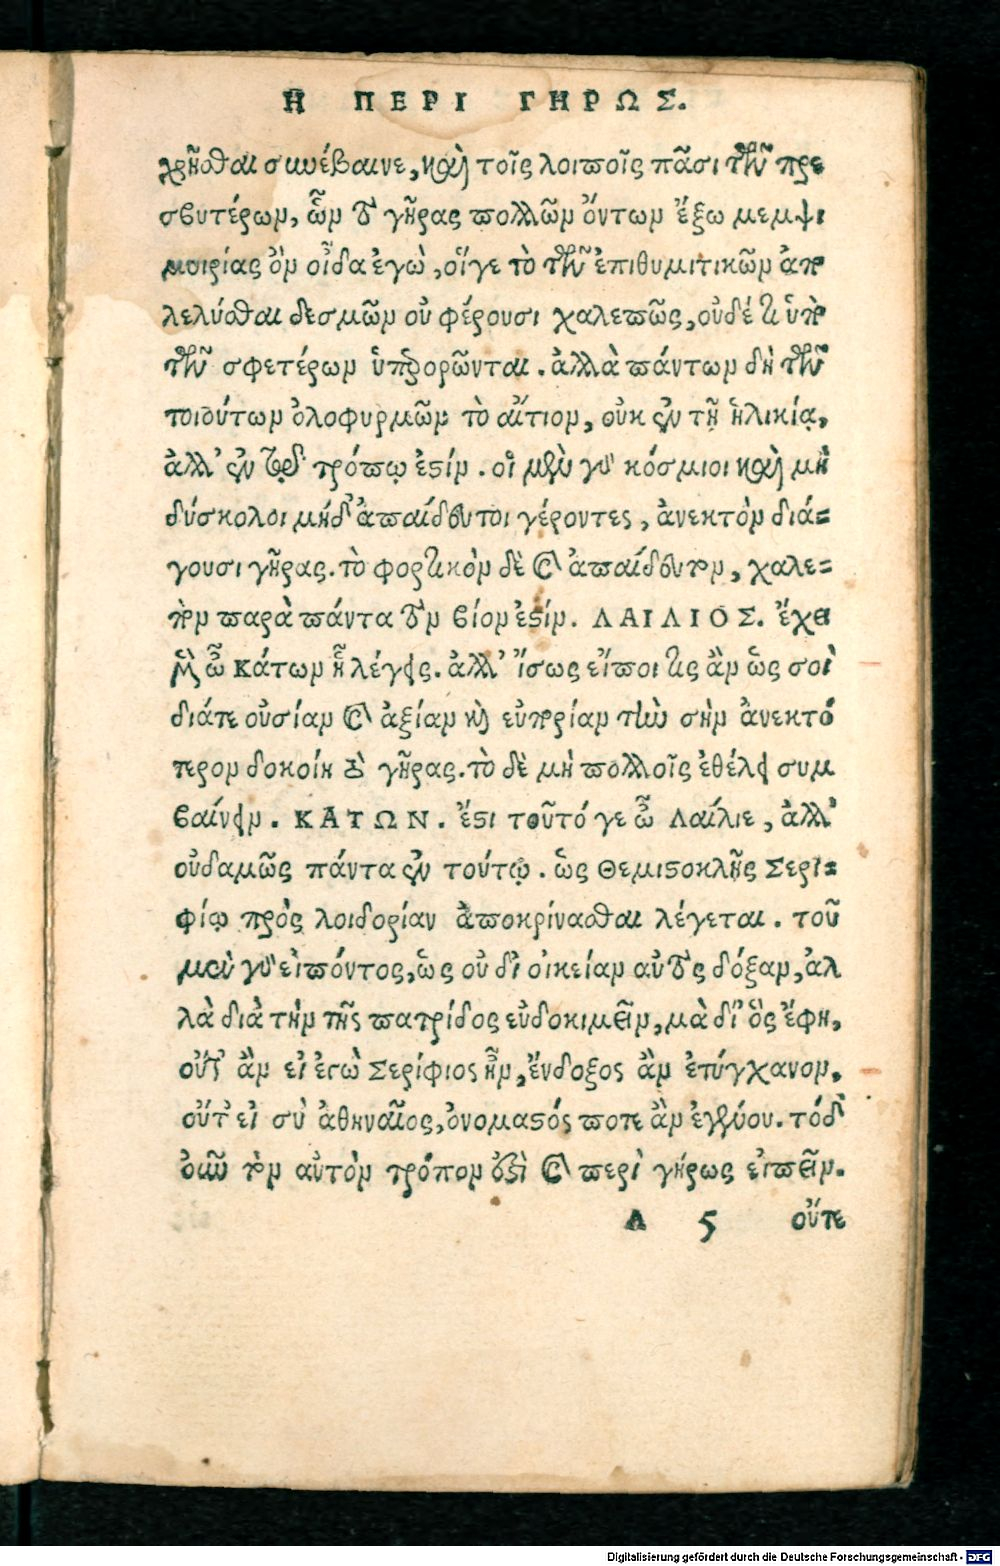 Η ΠΕΡΙ ΓΗΡΩΣ.
χρῆσθαι συνέβαινε, καὶ τοῖς λοιποῖς πᾶσι τῶν πρε
σβυτέρων, ὧν τὸ γῆρας πολλῶν ὄντων ἔξω μεμψι
μοιρίας ὃν οἶδα ἐγὼ, οἵγε τὸ τῶν ἐπιθυμιτικῶν ἀπο
λελύσθαι δεσμῶν οὐ φέρουσι χαλεπῶς, οὐδέ τι ὑπὸ
τῶν σφετέρων ὑπερορῶνται. ἀλλὰ πάντων δὴ τῶν
τοιούτων ὀλοφυρμῶν τὸ αἴτιον, οὐκ ἐν τῇ ἡλικίᾳ,
ἀλλ' ἐν τῷ τρόπῳ ἐστίν. οἳ μὲν γὰρ κόσμιοι καὶ μὴ
δύσκολοι μήδ' ἀπαίδευτοι γέροντες, ἀνεκτὸν διά=
γουσι γῆρας. τὸ φορτικὸν δὲ καὶ ἀπαίδευτον, χαλε=
πὸν παρὰ πάντα τὸν βίον ἐστίν. ΛΑΙΛΙΟΣ. ἔχει
μὲν ὦ Κάτων ᾗ λέγεις. ἀλλ' ἴσως εἴποι τις ἂν ὡς σοὶ
διάτε οὐσίαν καὶ ἀξίαν καὶ εὐπορίαν τὴν σὴν ἀνεκτό
τερον δοκοίη τὸ γῆρας. τὸ δὲ μὴ πολλοῖς ἐθέλει συμ
βαίνειν. ΚΑΤΩΝ. ἔστι τοῦτό γε ὦ Λαίλιε, ἀλλ'
οὐδαμῶς πάντα ἐν τούτῳ. ὡς Θεμιστοκλῆς Σερι=
φίῳ πρὸς λοιδορίαν ἀποκρίνασθαι λέγεται. τοῦ
μὲν γὰρ εἰπόντος, ὡς οὐ δι' οἰκείαν αὐτὸς δόξαν, ἀλ
λὰ διὰ τὴν τῆς πατρίδος εὐδοκιμεῖν, μὰ δί' ὃς ἔφη,
οὔτ' ἂν εἰ ἐγὼ Σερίφιος ἦν, ἔνδοξος ἂν ἐτύγχανον,
οὔτ' εἰ σὺ ἀθηναῖος, ὀνομαστός ποτε ἂν ἐγένου. τόδ'
οὖν τὸν αὐτὸν τρόπον ἔστι καὶ περὶ γήρως εἰπεῖν.
Λ 5 οὔτε
Digitalisierung gefördert durch die Deutsche Forschungsgemeinschaft - DFG